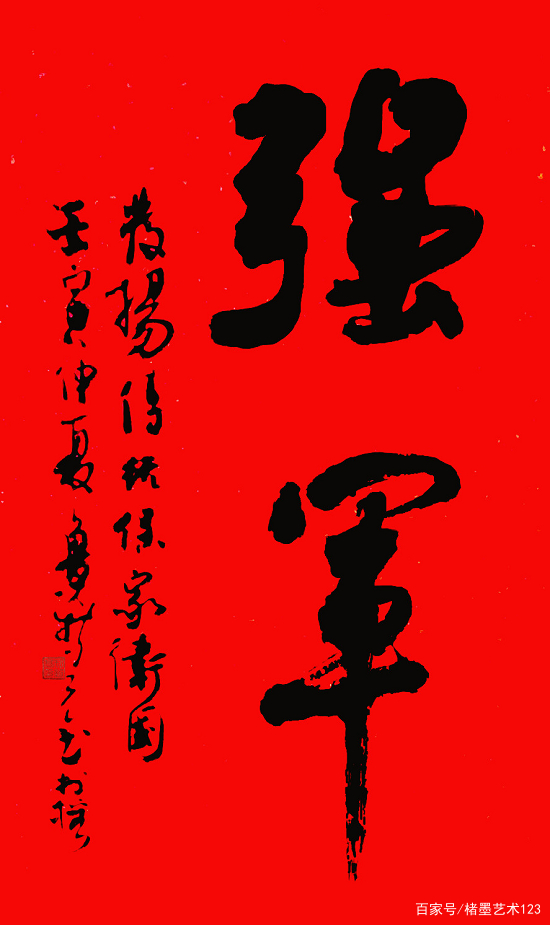 强军
发扬传统保家卫国
壬寅仲夏
百家号/楮墨艺术123